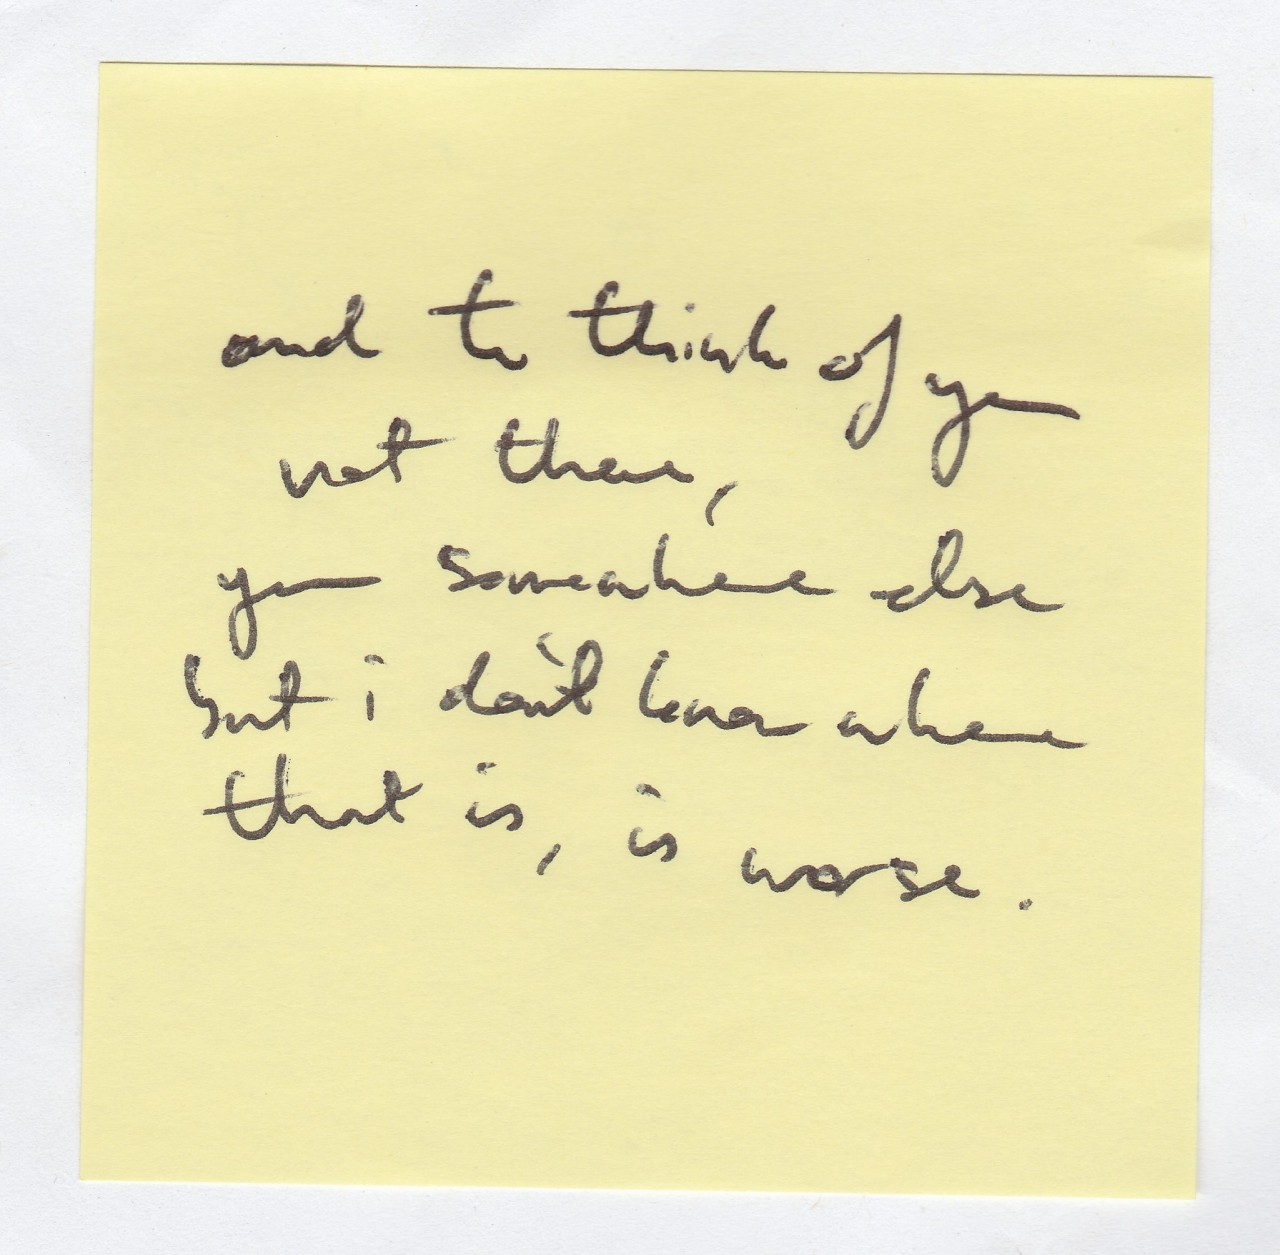 and to think of you
not there,
you somewhere else
but i don't know where
that is, is worse.